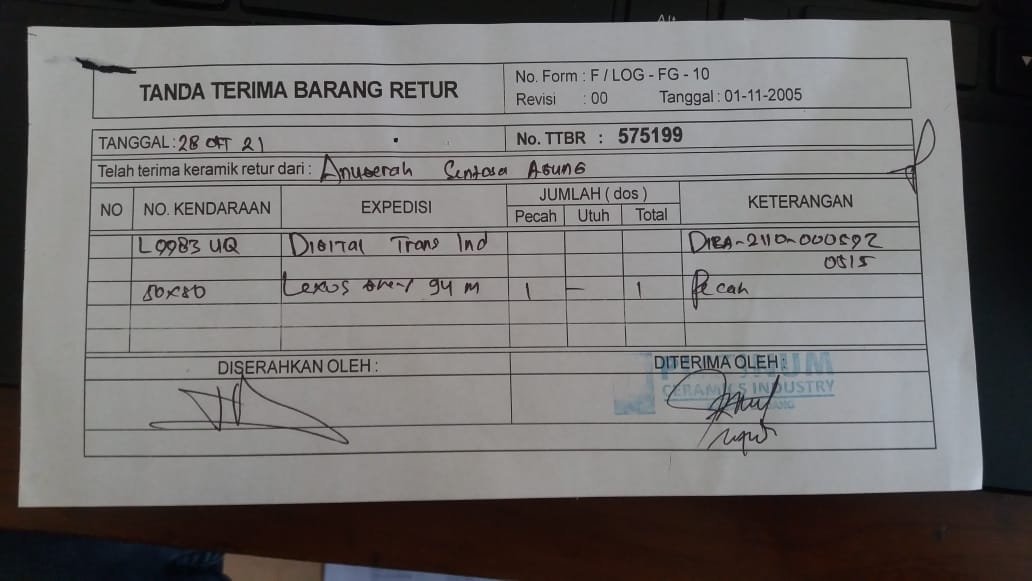 TANDA TERIMA BARANG RETUR
No. Form : F / LOG - FG - 10
Revisi : 00 Tanggal : 01-11-2005
TANGGAL : 28 OKT 21
No. TTBR : 575199
Telah terima keramik retur dari : Anugerah Sentosa Agung
NO NO. KENDARAAN EXPEDISI JUMLAH ( dos ) KETERANGAN
Pecah Utuh Total
L 9983 UQ DIGITAL Trans Ind DIRA-2110-000592
0515
80x80 Lexus Grey 94 M 1 – 1 Pecah
DISERAHKAN OLEH :
DITERIMA OLEH :
CERAMICS INDUSTRY